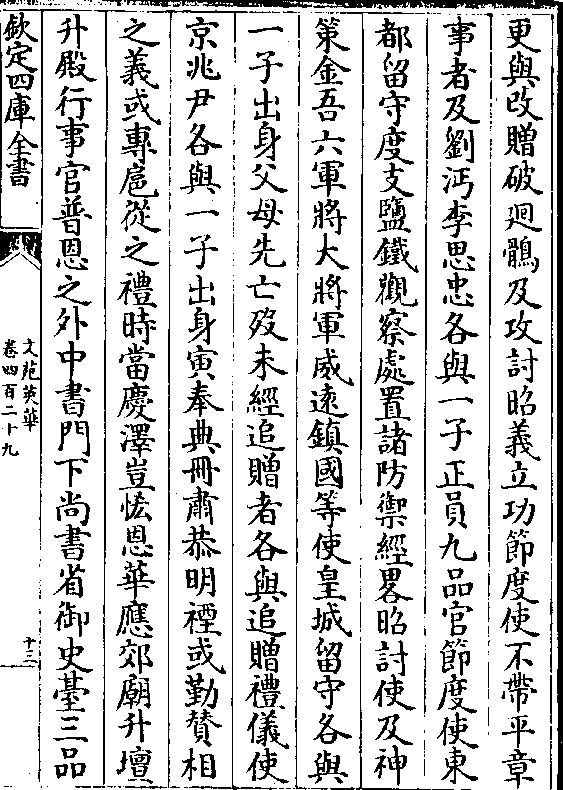 更與改贈破廻鶻及攻討昭義立功節度使不帶平章
事者及劉沔李思忠各與一子正員九品官節度使東
都留守度支鹽鐵觀察處置諸防禦經畧昭討使及神
策金吾六軍將大將軍威遠鎮國等使皇城留守各與
一子出身父母先亡歿未經追贈者各與追贈禮儀使
京兆尹各與一子出身寅奉典冊肅恭明禋或勤贊相
之義或專扈從之禮時當慶澤豈恡恩華應郊廟升壇
升殿行事官普恩之外中書門下尚書省御史臺三品
欽定四庫全書
文苑英華
卷四百二十九
十三